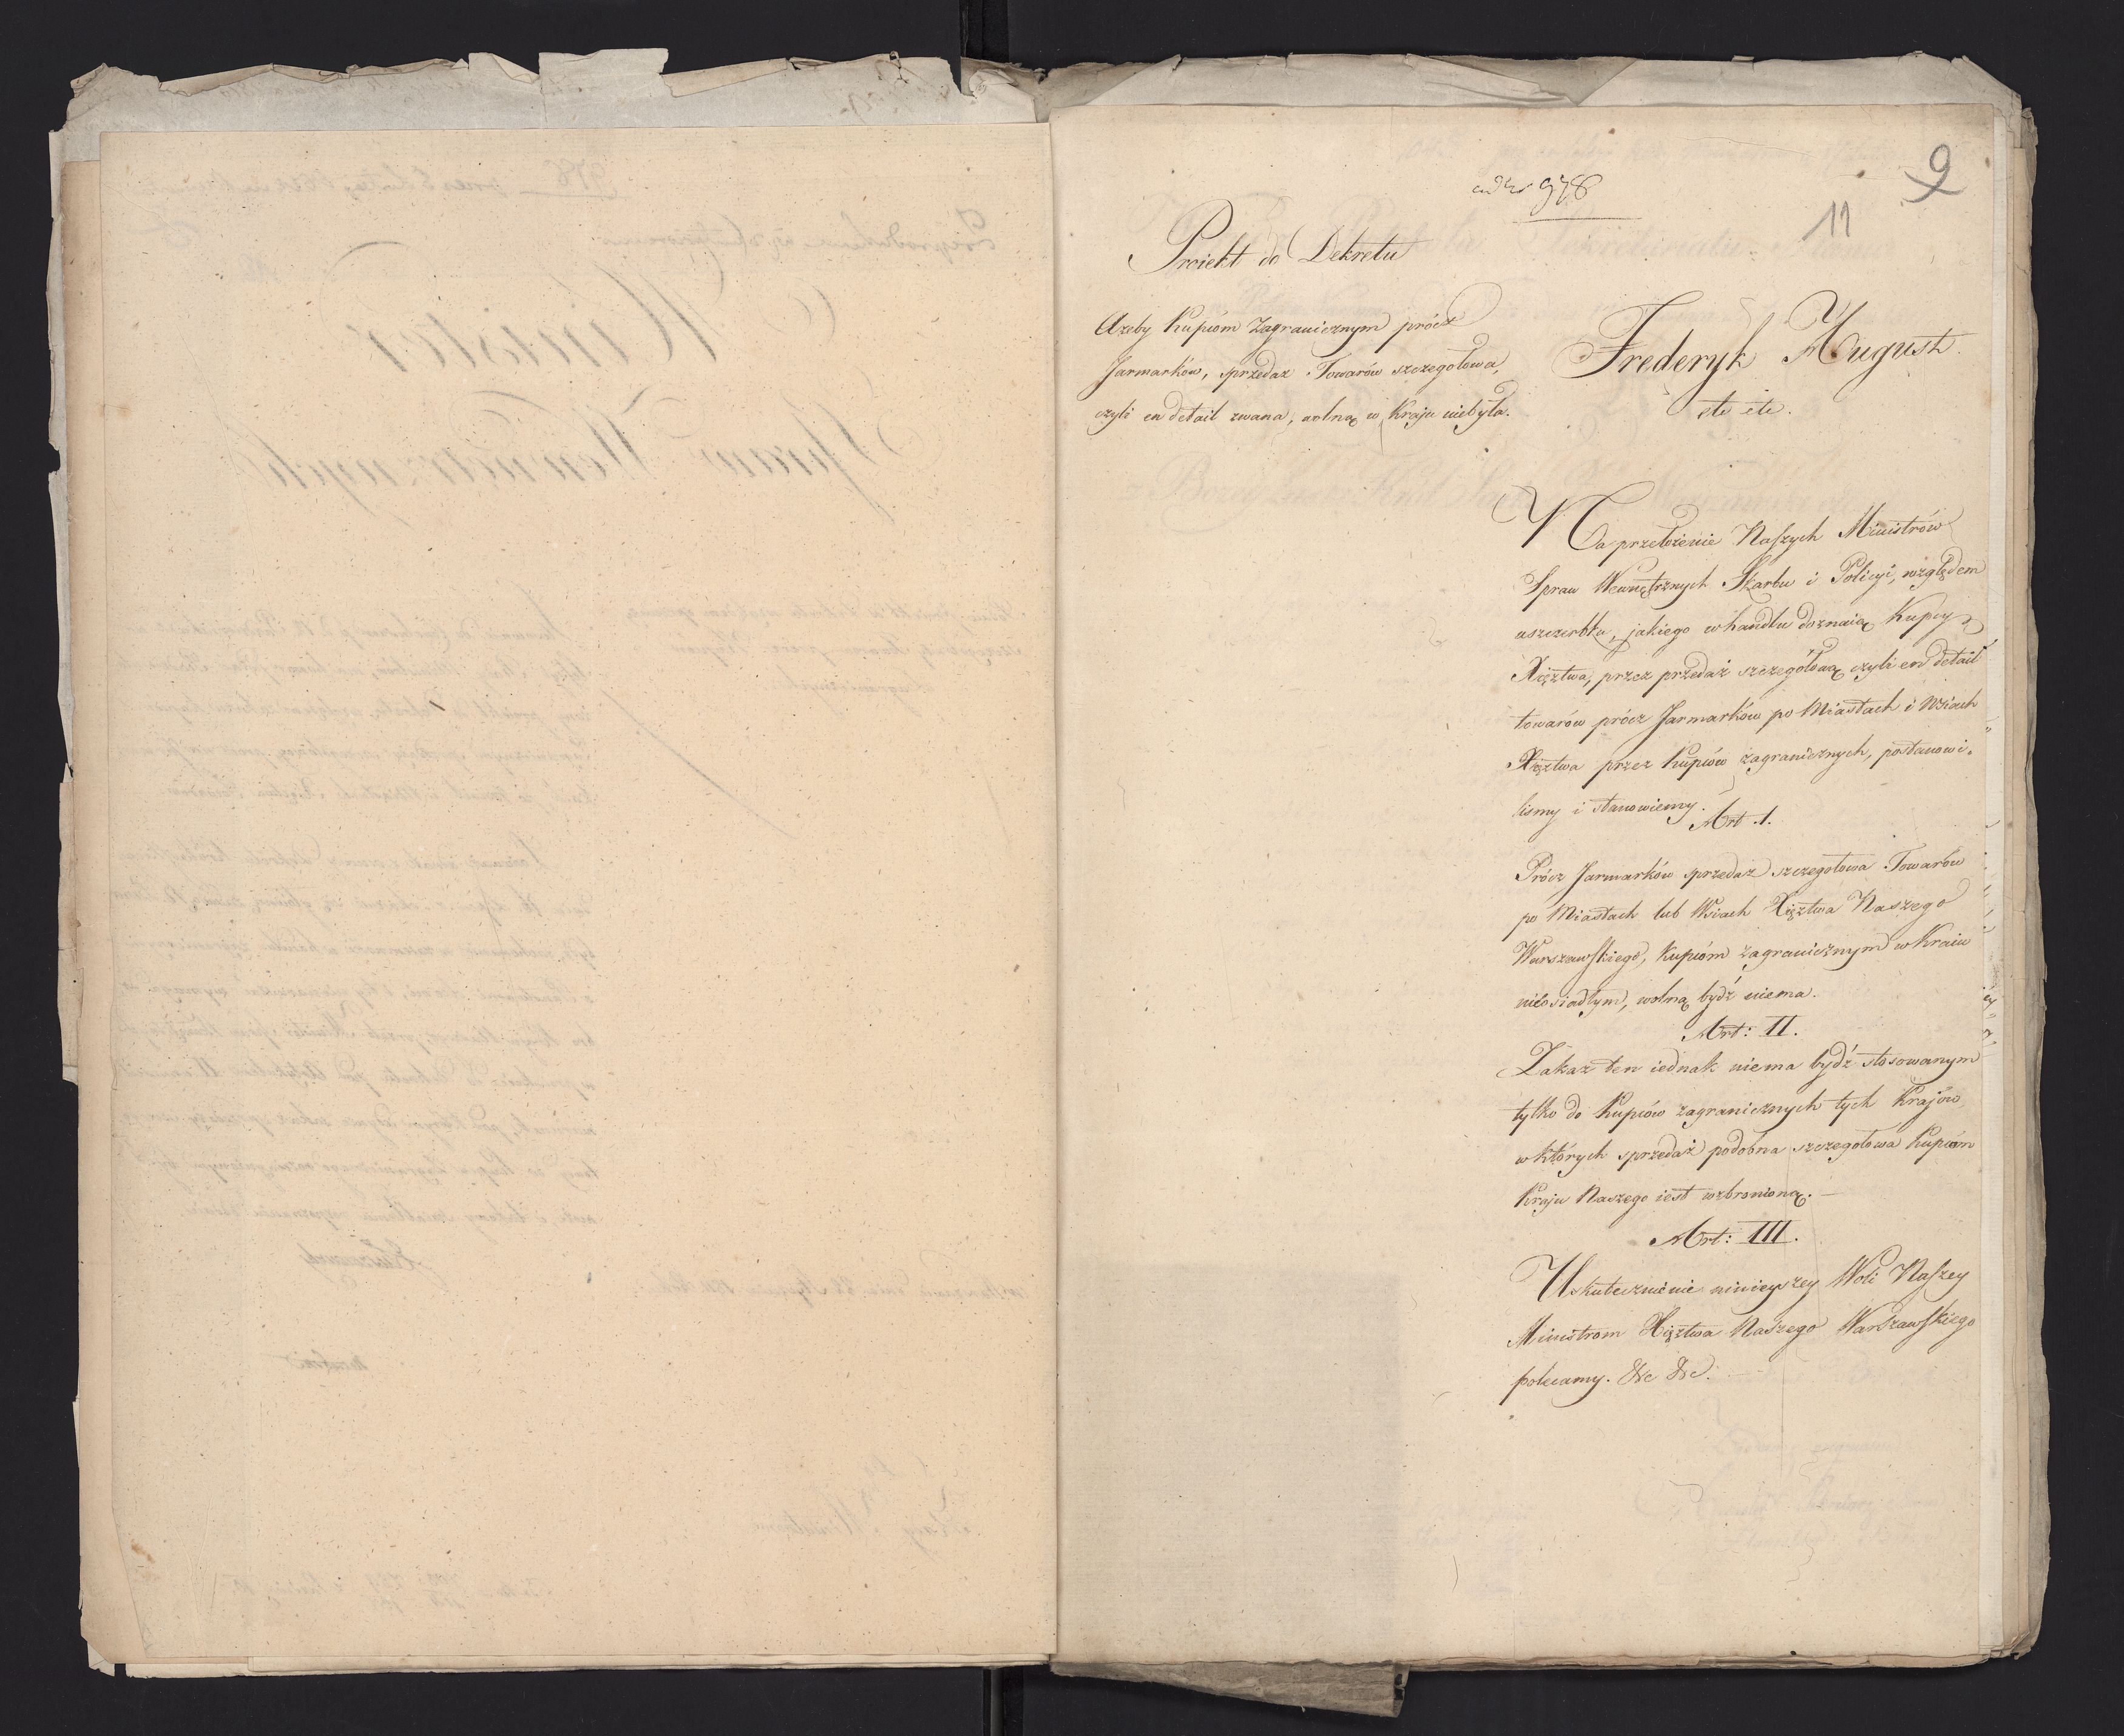 ad N 978
9
11
Proiekt do Dekretu
Ażeby Kupcóm Zagranicznym prócz
Jarmarków, sprzedaż Towarów szczegołowa,
czyli en detail zwana, wolną w Kraju niebyła.
Frederyk August
etc etc.
Na przełożenie Naszych Ministrów
Spraw Wewnętrznych Skarbu i Policyi, względem
uszczerbku, jakiego w handlu doznaią Kupcy
Xięztwa, przez przedaż szczegółową czyli en detail
towarów prócz Jarmarków po Miastach i Wsiach
Xięztwa przez Kupców zagranicznych, postanowi„
lismy i stanowiemy.
Art 1.
Prócz Jarmarków sprzedaż szczegołowa Towarów
po Miastach lub Wsiach Xięztwa Naszego
Warszawskiego, Kupcóm zagranicznym w Kraiu
nieosiadłym, wolną bydź niema.
Art: II.
Zakaz ten iednak niema bydź stosowanym
tylko do Kupców zagranicznych tych Krajów
w których sprzedaż podobna szczegołowa Kupcóm
Kraju Naszego iest wzbronioną.
Art: III.
Uskutecznienie ninieyszey Woli Naszey
Ministrom Xięztwa Naszego Warszawskiego
polecamy. &c &c.